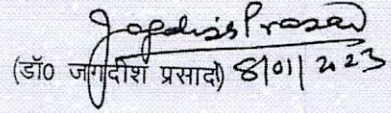 Jagdish Prasad
(डॉ0 जगदीश प्रसाद) 8/01/2023